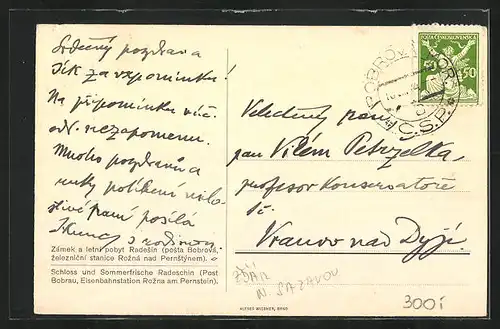 Srdečný pozdrav a
dík za vzpomínku!
Na připomínku
nezapomenu.
Mnoho pozdravů a
ruky políbení
paní posílá
s rodinou
Zámek a letní pobyt Radešín (pošta Bobrová,
železniční stanice Rožná nad Pernštýnem).
Schloss und Sommerfrische Radeschin (Post
Bobrau, Eisenbahnstation Rožna am Pernstein).
POŠTA ČESKOSLOVENSKÁ
50 50
Č.S.P.
pan Vilém Petrželka,
profesor konservatoře
Vranov nad Dyjí
ŽĎÁR
N SÁZAVOU
ALFRED WIESNER, BRNO